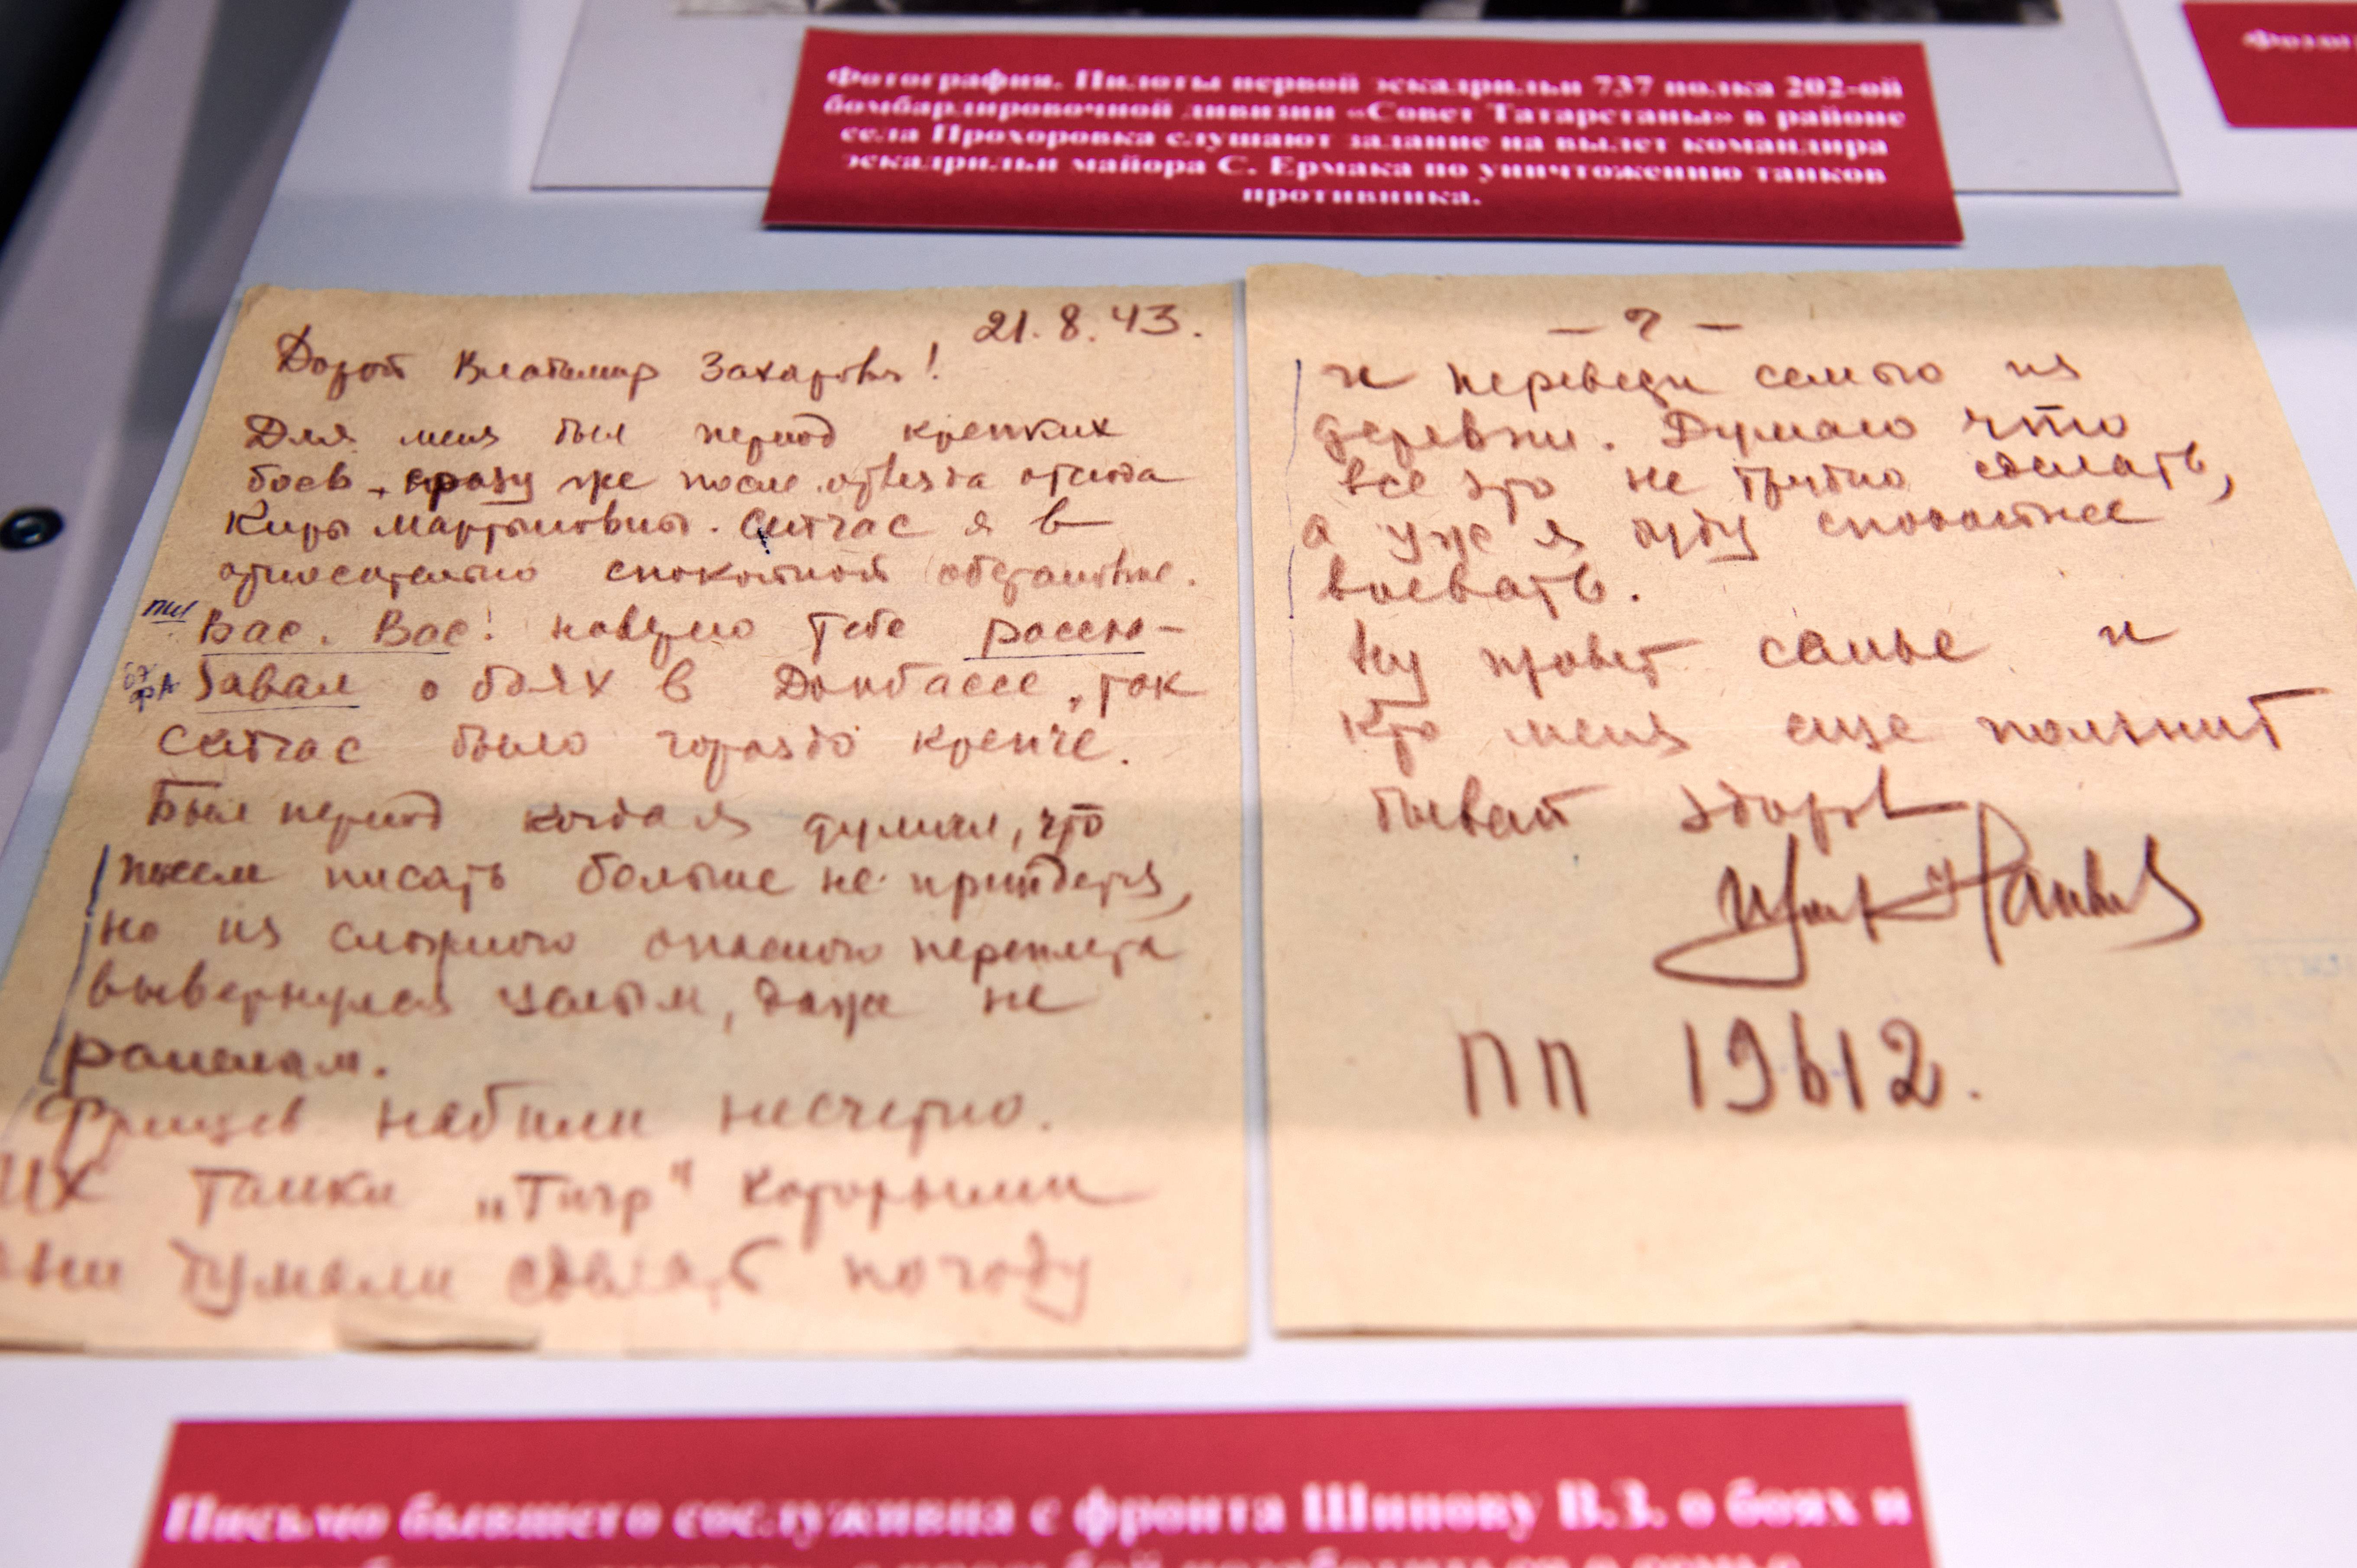 Фотография. Пилоты первой эскадрильи 737 полка 202-ой
бомбардировочной дивизии «Совет Татарстаны» в районе
села Прохоровка слушают задание на вылет командира
эскадрильи майора С. Ермака по уничтожению танков
противника.
21.8.43.
Дорогой Владимир Захарович!
Для меня был период крепких
боев, сразу же после отъезда отсюда
Киры Мартыновны. Сейчас я в
относительно спокойной обстановке.
Вас. Вас. наверно тебе расска-
зывал о боях в Донбассе, так
сейчас было гораздо крепче.
Был период когда я думал, что
писем писать больше не прийдется,
но из сложного опасного переплета
вывернулся целым, даже не
раненым.
Фрицев набили несчетно.
Их танки „Тигр" которыми
они думали сделать погоду
– 2 –
и перевези семью из
деревни. Думаю что
все это не трудно сделать,
а уж я буду спокойнее
воевать.
Ну привет семье и
кто меня еще помнит
бывай здоров
ПП 19612.
Письмо бывшего сослуживца с фронта Шипову В.З. о боях и